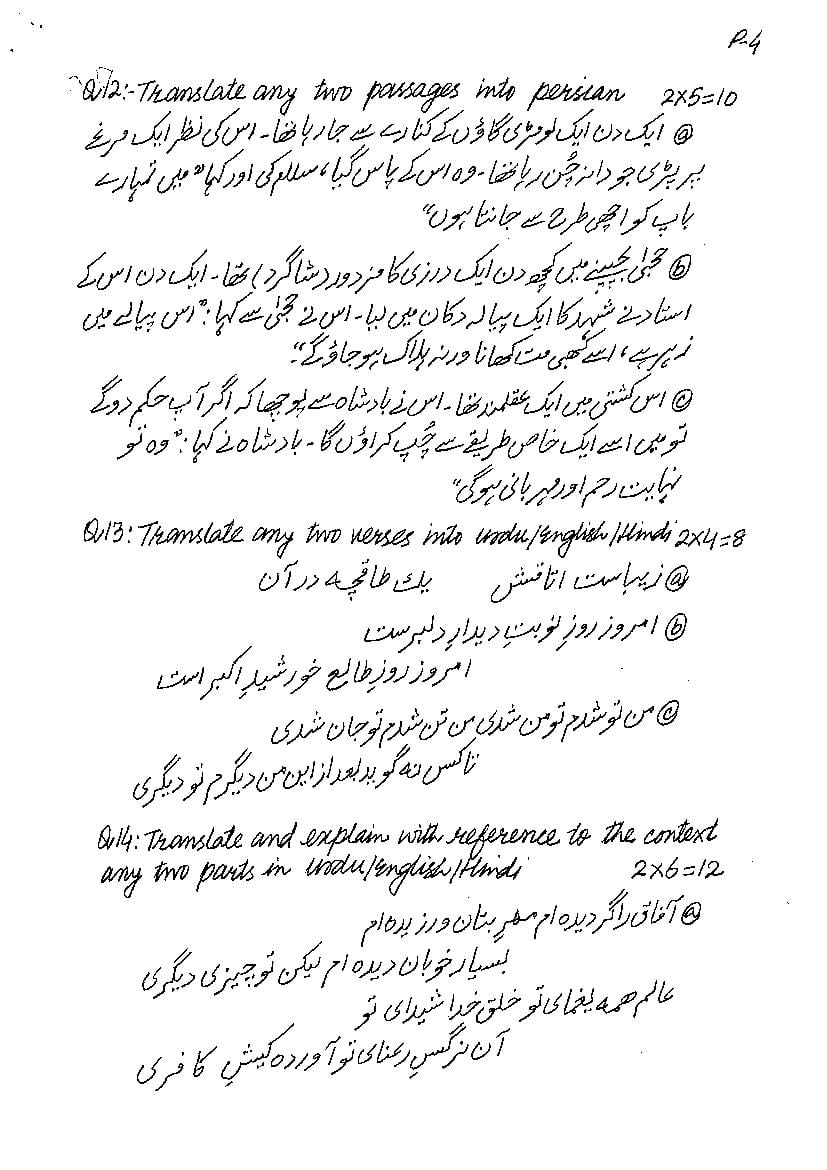 P-4
Q.12:- Translate any two passages into persian 2×5=10
ⓐ ایک دن ایک لومڑی گاؤں کے کنارے سے جا رہا تھا۔ اس کی نظر ایک مرغے
پر پڑی جو دانہ چُن رہا تھا۔ وہ اس کے پاس گیا، سلام کی اور کہا "میں تمہارے
باپ کو اچھی طرح سے جانتا ہوں"
ⓑ جحیٰ بچپنے میں کچھ دن ایک درزی کا مزدور (شاگرد) تھا۔ ایک دن اس کے
استاد نے شہد کا ایک پیالہ دکان میں لیا۔ اس نے جحیٰ سے کہا: "اس پیالے میں
زہر ہے، اسے کبھی مت کھانا ورنہ ہلاک ہو جاؤ گے"۔
ⓒ اس کشتی میں ایک عقلمند تھا۔ اس نے بادشاہ سے پوچھا کہ اگر آپ حکم دو گے
تو میں اسے ایک خاص طریقے سے چُپ کراؤں گا۔ بادشاہ نے کہا: "وہ تو
نہایت رحم اور مہربانی ہوگی"
Q.13: Translate any two verses into urdu/English/Hindi 2×4=8
ⓐ زیباست اتاقش یك طاقچہ در آن
ⓑ امروز روزِ نوبتِ دیدارِ دلبرست
امروز روزِ طالعِ خورشیدِ اکبر است
ⓒ من تو شدم تو من شدی من تن شدم تو جان شدی
تا کس نہ گوید بعد از این من دیگرم تو دیگری
Q.14: Translate and explain with reference to the context
any two parts in Urdu/English/Hindi 2×6=12
ⓐ آفاق را گردیدہ ام مھرِ بتان ورزیدہ ام
بسیار خوبان دیدہ ام لیکن تو چیزی دیگری
عالم ھمہ یغمای تو خلقِ خدا شیدای تو
آن نرگسِ رعنای تو آوردہ کیشِ کافری